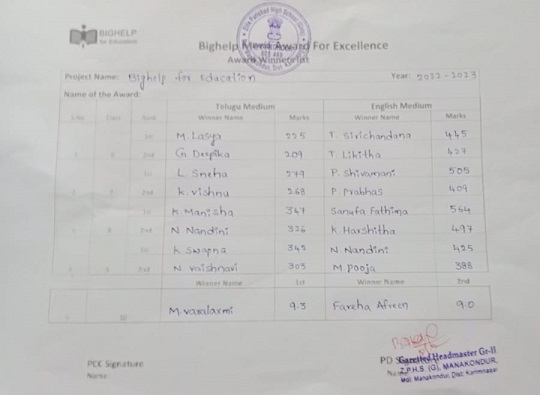 BIGHELP
for Education
Bighelp Merit Award For Excellence
Award Winners list
Project Name: Bighelp for Education Year: 2022-2023
Name of the Award:
Telugu Medium English Medium
S.No Class Rank Winner Name Marks Winner Name Marks
1st M. Lasya 225 T. Sirichandana 445
2nd G. Deepika 209 T. Likitha 427
1st L. Sneha 279 P. Shivamani 505
2nd K. Vishnu 268 P. Prabhas 409
1st K. Manisha 347 Sanufa Fathima 564
2nd N Nandini 336 K. Harshitha 497
1st K Swapna 345 N. Nandini 425
2nd N. Vaishnavi 303 M. Pooja 388
Winner Name 1st Winner Name 2nd
10 M. Varalaxmi 9.3 Fareha Afreen 9.0
PCC Signature
Name:
PD
Gazetted Headmaster Gr-II
Z.P.H.S. (G), MANAKONDUR,
Mdl: Manakondur, Dist: Karimnagar